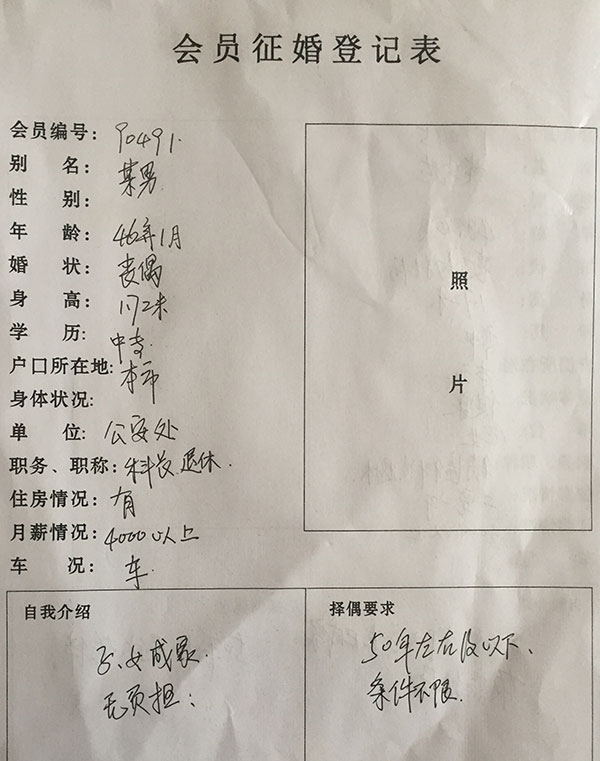 会员征婚登记表
会员编号: 90491
别 名: 某男
性 别:
年 龄: 46年1月
婚 状: 丧偶
身 高: 1.72米
学 历: 中专
户口所在地: 本市
身体状况:
单 位: 公安处
职务、职称: 科长.退休.
住房情况: 有
月薪情况: 4000以上
车 况: 车
照
片
自我介绍
子.女成家.
无负担:
择偶要求
50年左右及以下、
条件不限.